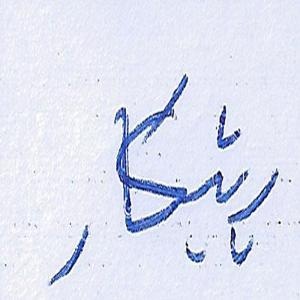 پیشکار